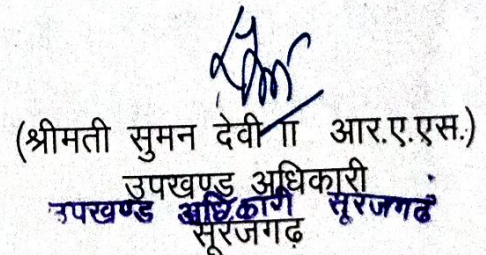 (श्रीमती सुमन देवी ा आर.ए.एस.)
उपखण्ड अधिकारी
उपखण्ड अधिकारी सूरजगढ़
सूरजगढ़